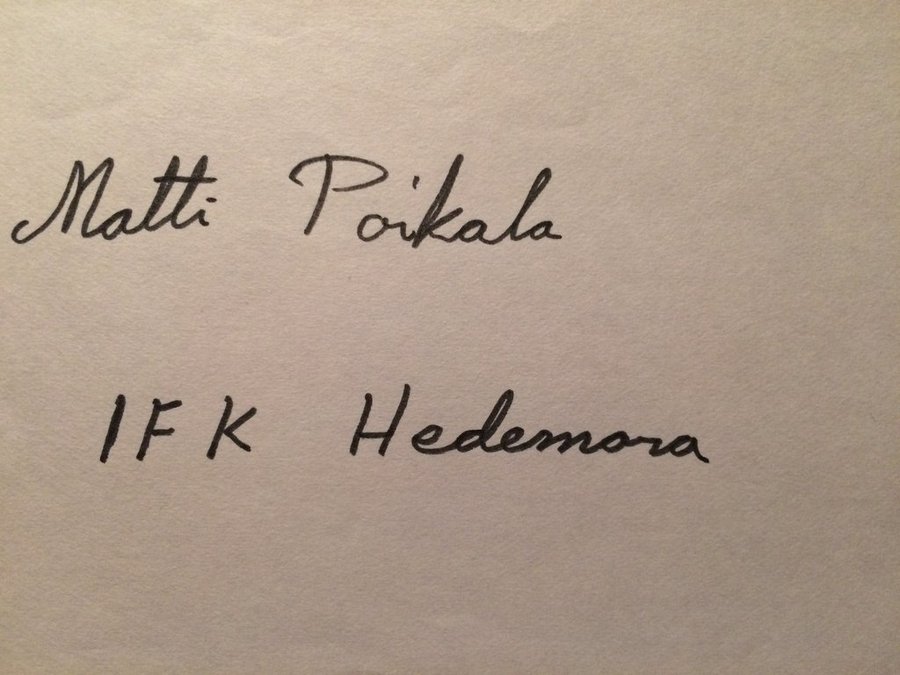 Matti Poikala
IFK Hedemora